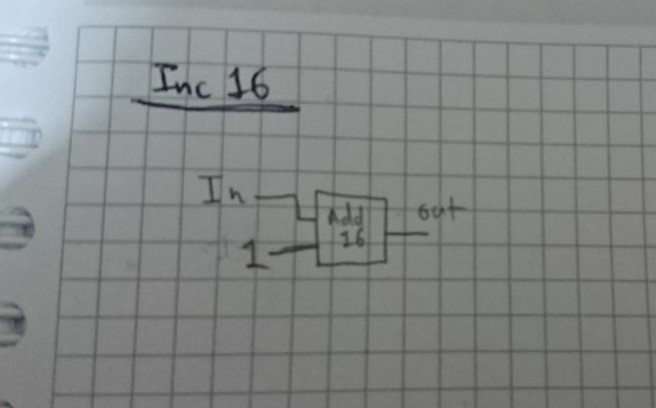 Inc 16
In
Add
16
out
1